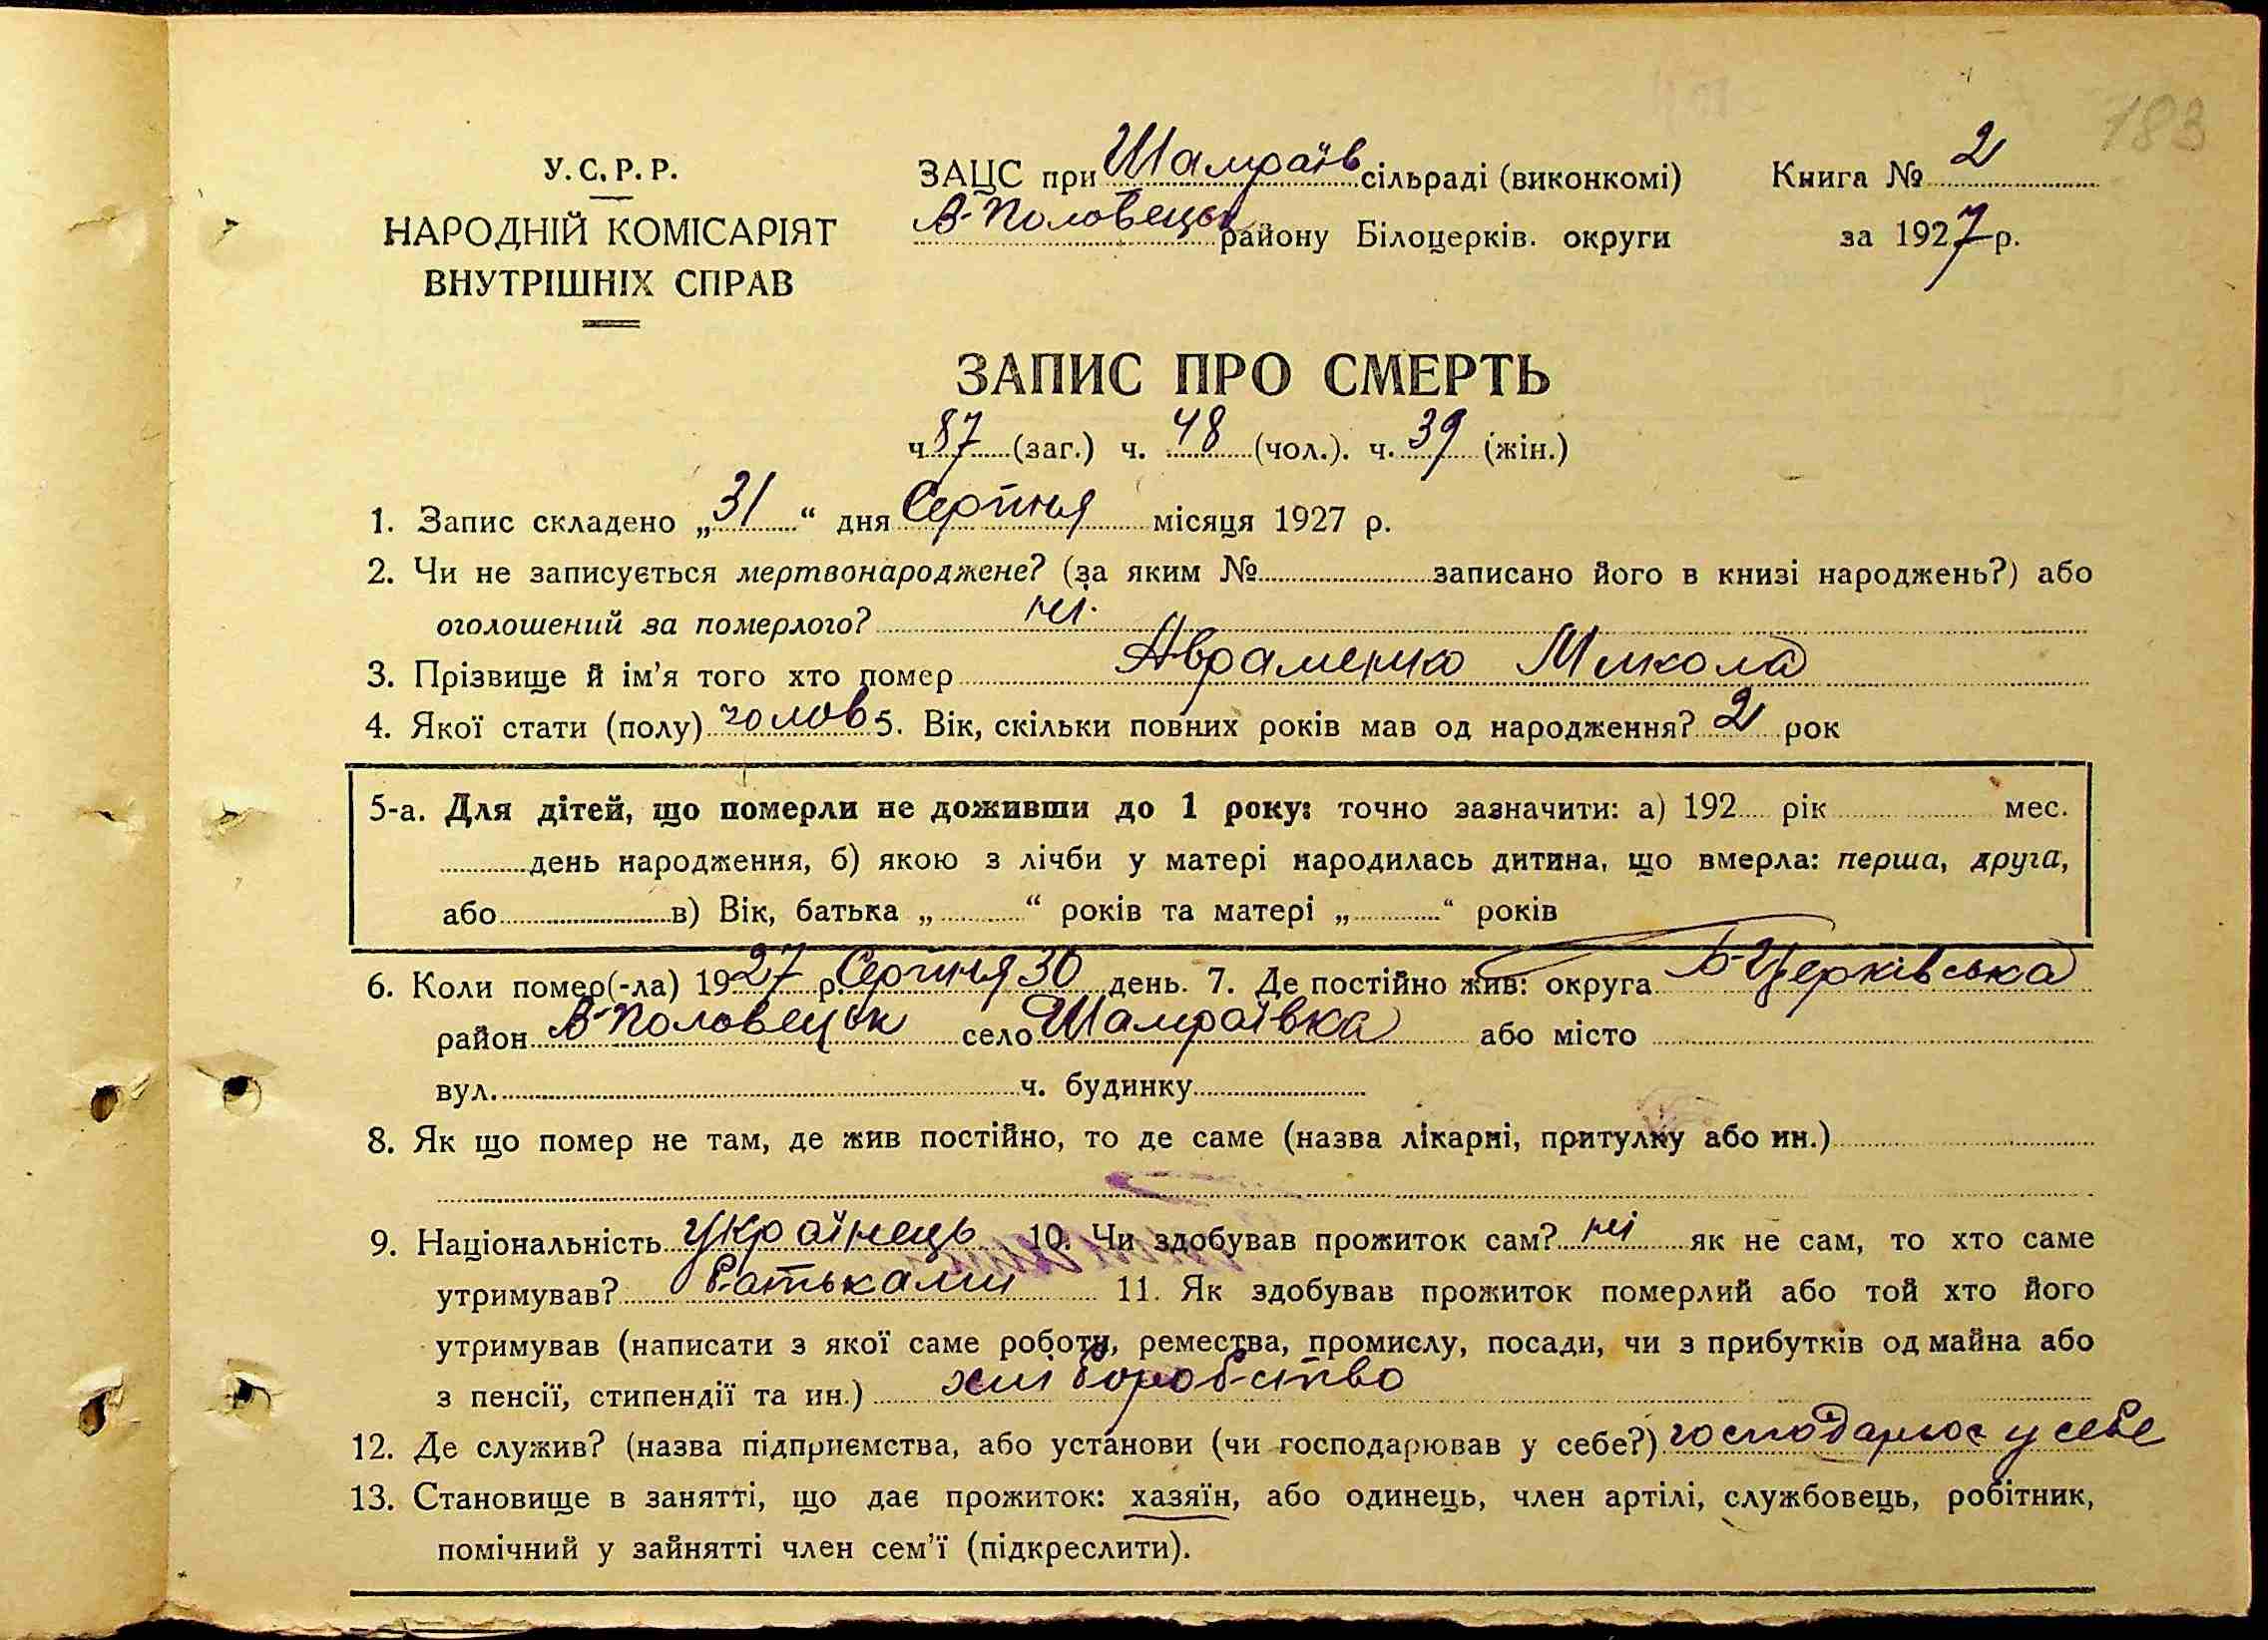 183
У.С.Р.Р.
НАРОДНІЙ КОМІСАРІЯТ
ВНУТРІШНІХ СПРАВ
ЗАЦС при Шамраїв сільраді (виконкомі)
В-Половецьк району Білоцерків. округи
Книга № 2
за 1927 р.
ЗАПИС ПРО СМЕРТЬ
ч. 87 (заг.) ч. 48 (чол.). ч. 39 (жін.)
1. Запис складено „31“ дня Серпня місяця 1927 р.
2. Чи не записується мертвонароджене? (за яким № записано його в книзі народжень?) або
оголошений за померлого? ні
3. Прізвище й ім'я того хто помер Авраменко Микола
4. Якої стати (полу) чолов 5. Вік, скільки повних років мав од народження? 2 рок
5-а. Для дітей, що померли не доживши до 1 року: точно зазначити: а) 192 рік мес.
день народження, б) якою з лічби у матері народилась дитина, що вмерла: перша, друга,
або в) Вік, батька „ “ років та матері „ “ років
6. Коли помер(-ла) 1927 р. Серпня 30 день. 7. Де постійно жив: округа Б-Церківська
район В-Половецьк село Шамраївка або місто
вул. ч. будинку
8. Як що помер не там, де жив постійно, то де саме (назва лікарні, притулку або ин.)
9. Національність Українець 10. Чи здобував прожиток сам? ні як не сам, то хто саме
утримував? Батьками 11. Як здобував прожиток померлий або той хто його
утримував (написати з якої саме роботи, ремества, промислу, посади, чи з прибутків од майна або
з пенсії, стипендії та ин.) хліборобство
12. Де служив? (назва підприємства, або установи (чи господарював у себе?) господарює у себе
13. Становище в занятті, що дає прожиток: хазяїн, або одинець, член артілі, службовець, робітник,
помічний у зайнятті член сем'ї (підкреслити).